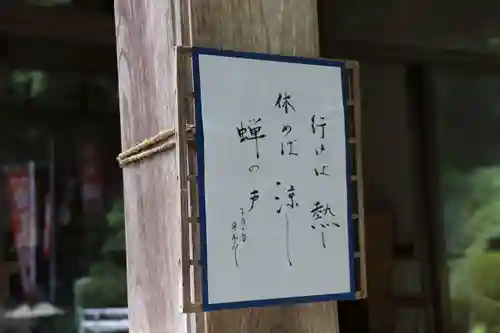 行けば熱し
休めば涼し
蝉の声